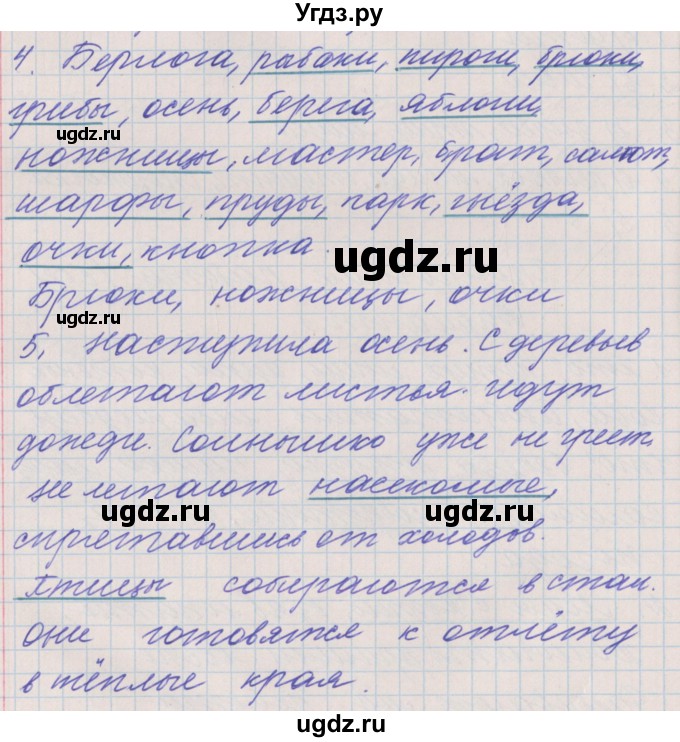 Угдз.ру
4. Берлога, рабаки, пироги, брюки,
грибы, осень, берега, яблони,
ножницы, мастер, брат, салют,
шарфы, пруды, парк, гнёзда,
очки, кнопка.
Брюки, ножницы, очки
5. Наступила осень. С деревьев
облетают листья. Идут
дожди. Солнышко уже не греет.
Не летают насекомые,
спрятавшись от холодов.
Птицы собираются в стаи.
Они готовятся к отлёту
в тёплые края.
ugdz.ru
ugdz.ru
ugdz.ru
ugdz.ru
ugdz.ru
ugdz.ru
ugdz.ru
ugdz.ru